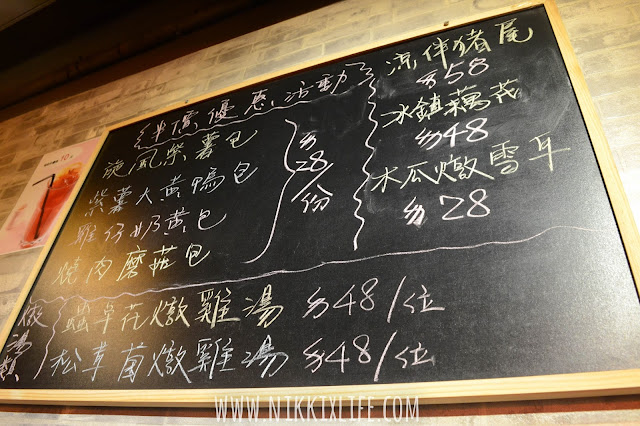 半價優惠活動
旋風紫薯包
紫薯大黃鴨包
雞仔奶黃包
燒肉磨菇包
$28/份
凉伴猪尾
$58
冰鎮藕茂
$48
木瓜燉雪耳
$28
湯類
蟲草花燉雞湯 $48/位
松茸菌燉雞湯 $48/位
WWW.NIKKIXLIFE.COM